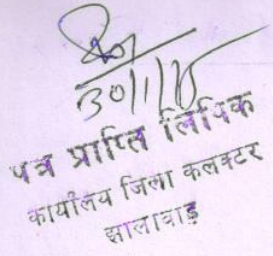 30/11/15
पत्र प्राप्ति लिपिक
कार्यालय जिला कलक्टर
झालावाड़